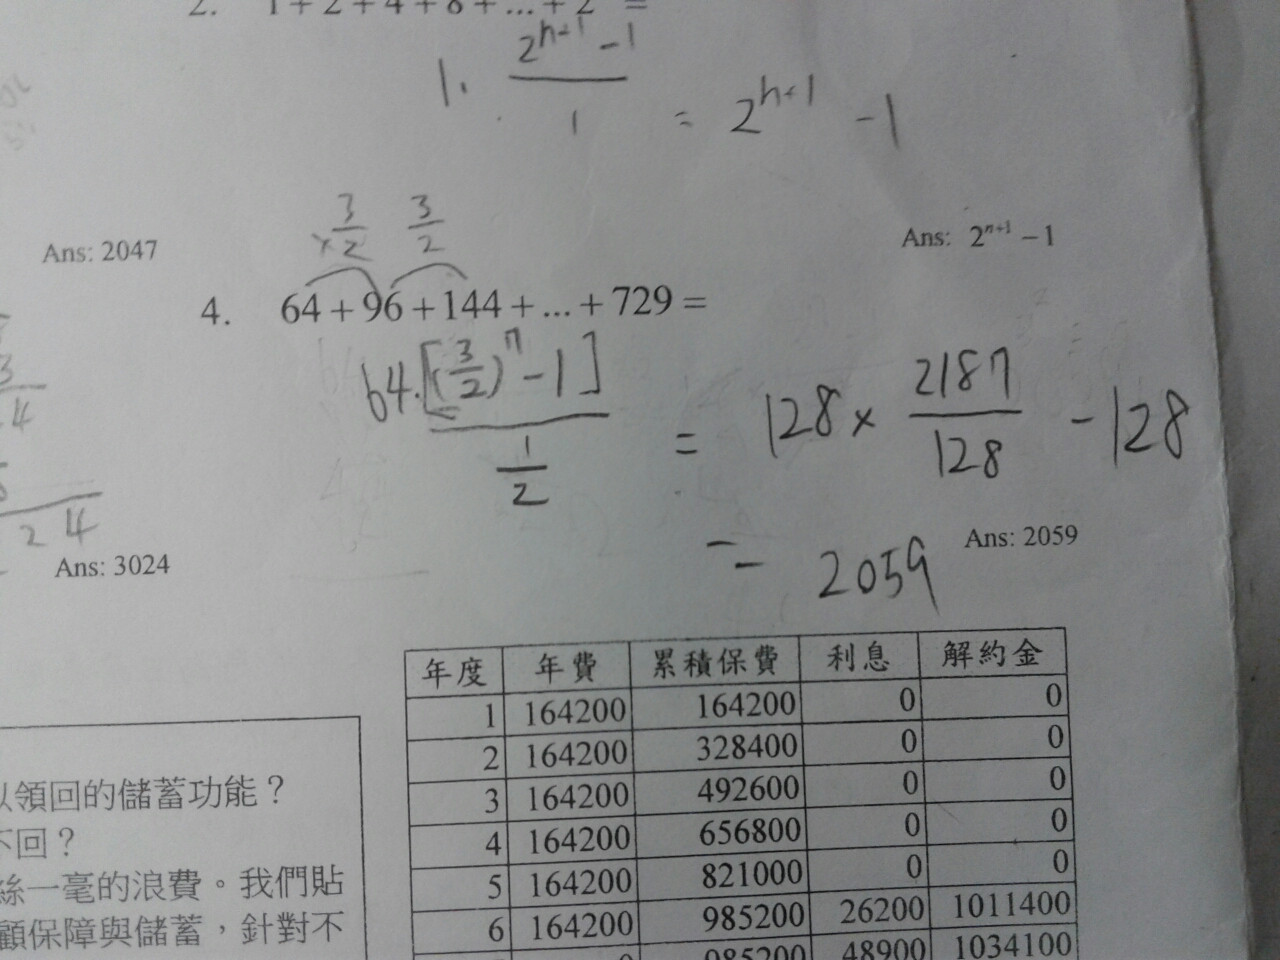 2. 1 + 2 + 4 + 8 + ... + 2 =
1. (2^(n+1) - 1)/1 = 2^(n+1) - 1
Ans: 2047
Ans: 2^(n+1) - 1
×3/2 3/2
4. 64 + 96 + 144 + ... + 729 =
64·[(3/2)^7 - 1] / (1/2) = 128 × 2187/128 - 128
= 2059
Ans: 2059
24
Ans: 3024
年度 年費 累積保費 利息 解約金
1 164200 164200 0 0
2 164200 328400 0 0
3 164200 492600 0 0
4 164200 656800 0 0
5 164200 821000 0 0
6 164200 985200 26200 1011400
0 985200 48900 1034100
以領回的儲蓄功能？
不回？
絲一毫的浪費。我們貼
顧保障與儲蓄，針對不